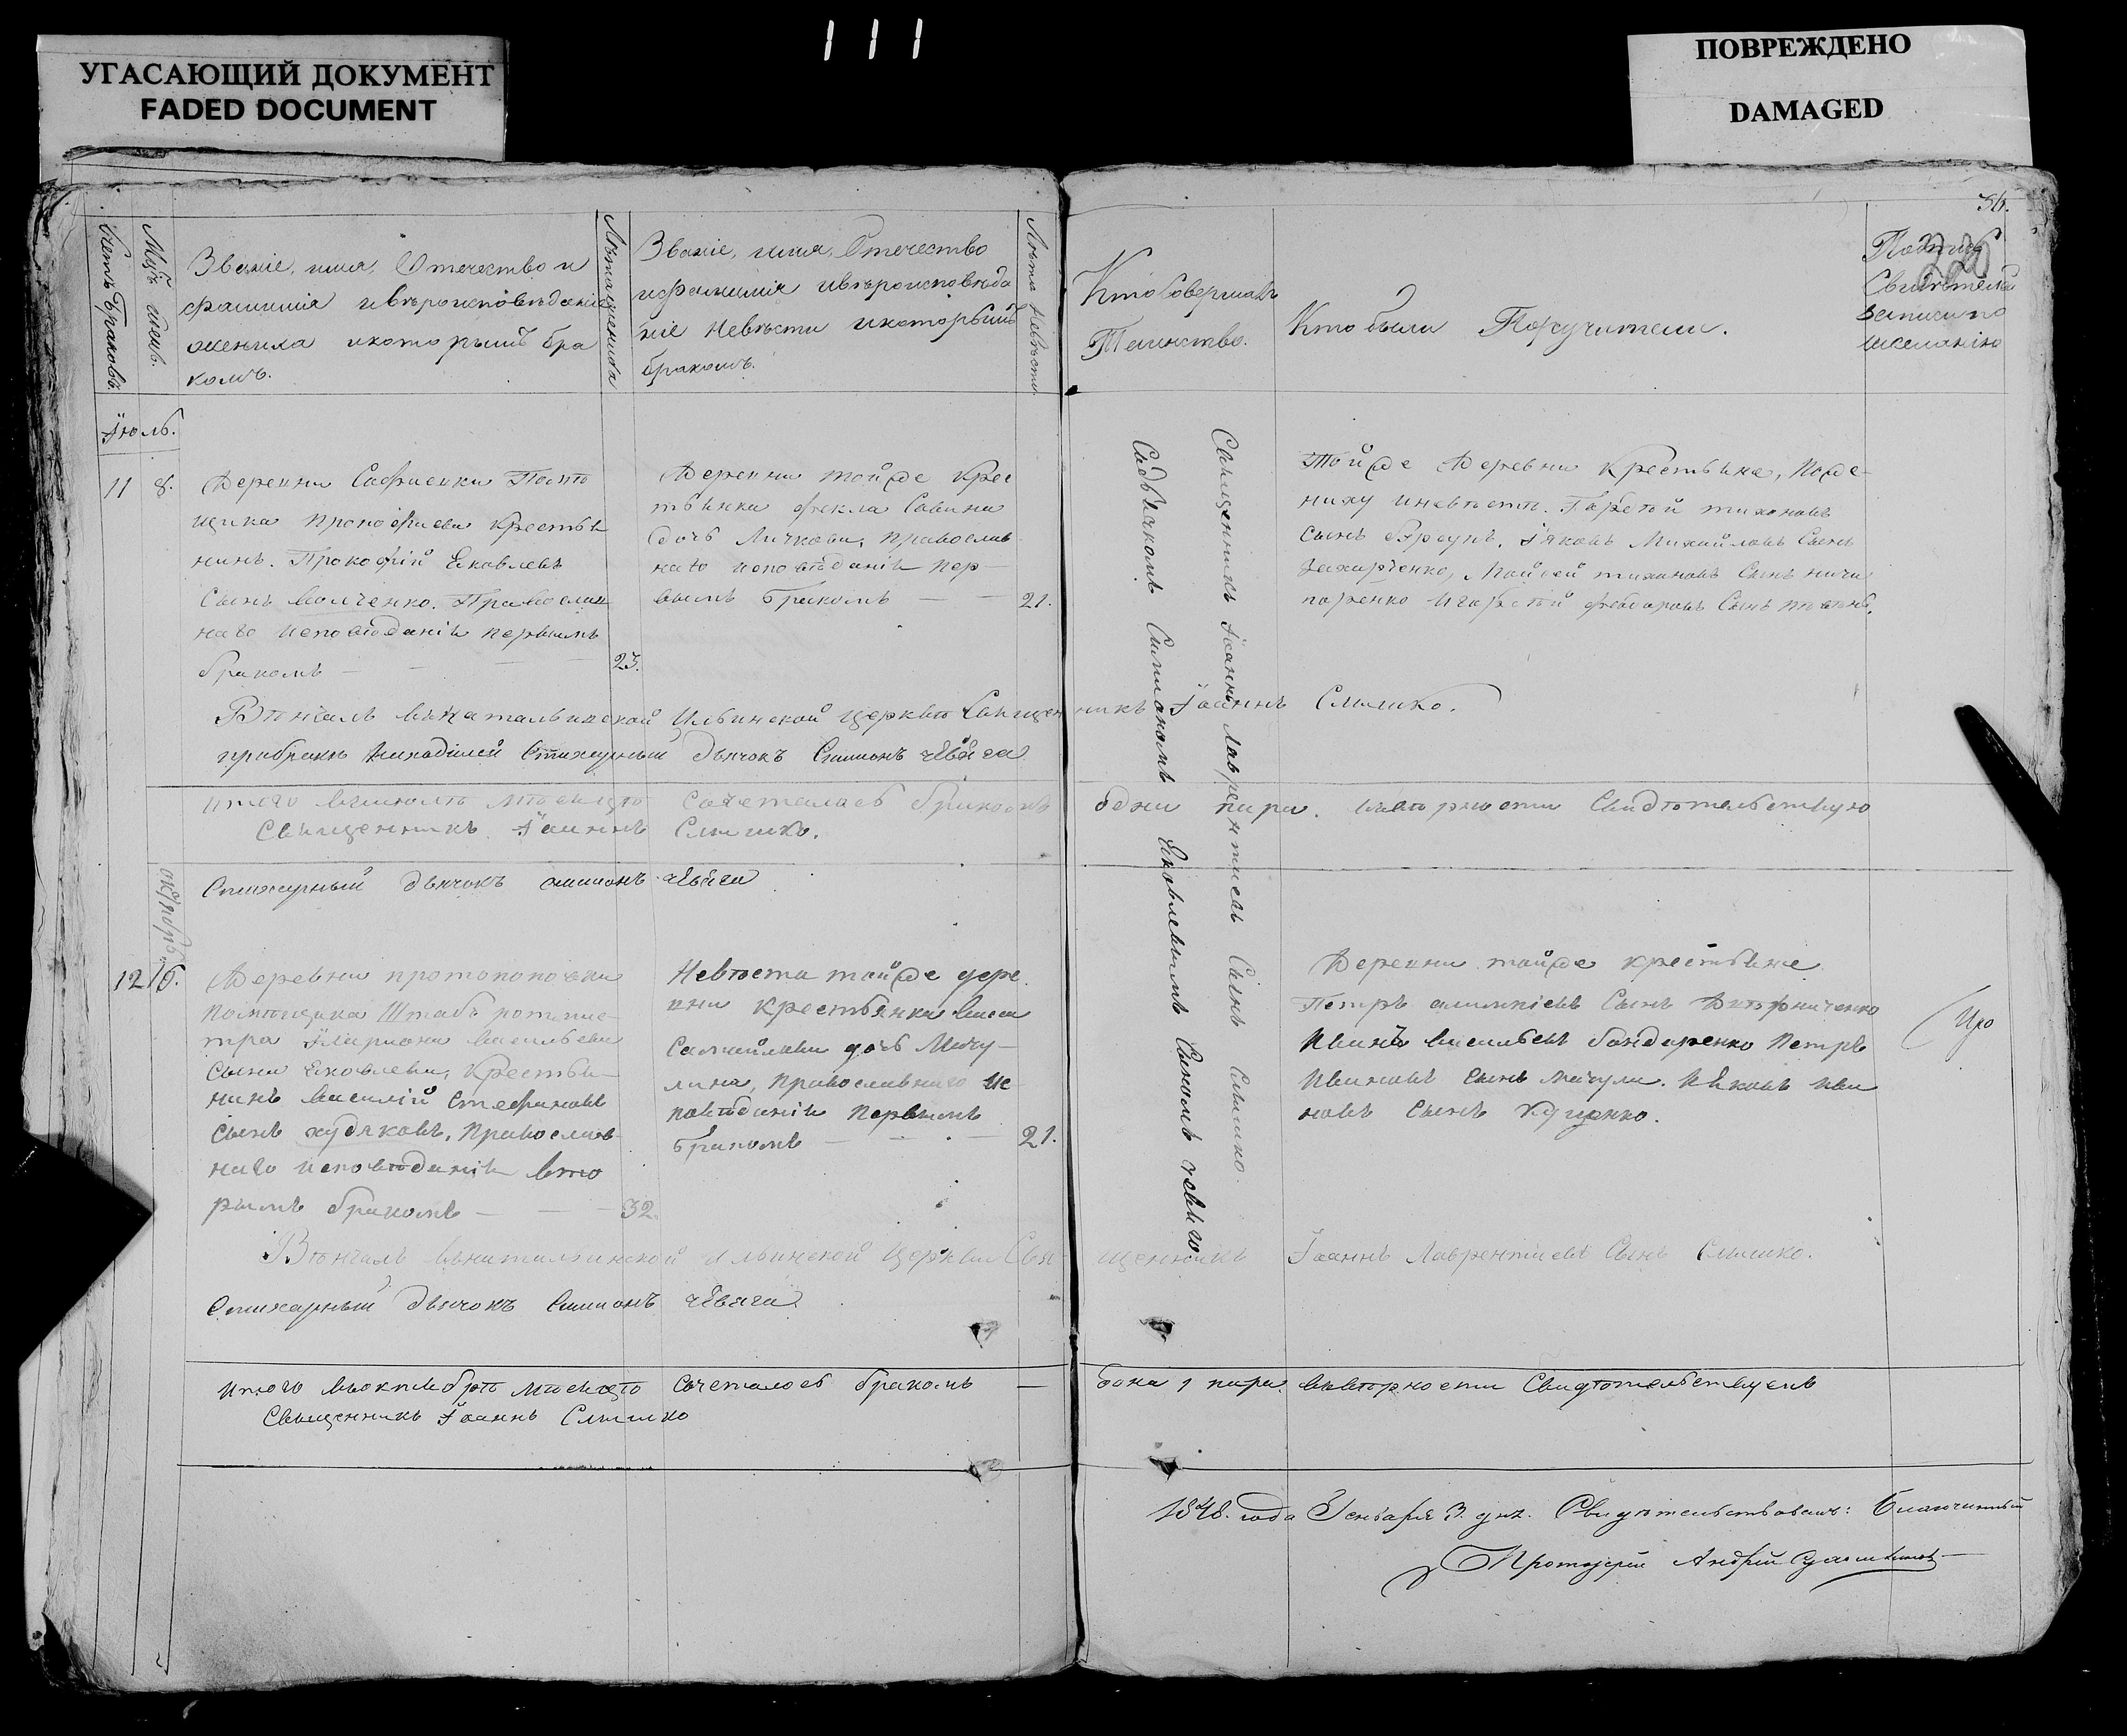 111
УГАСАЮЩИЙ ДОКУМЕНТ
FADED DOCUMENT
ПОВРЕЖДЕНО
DAMAGED
36.
Мцъ
Званіе, имя, Отечество и
фамилія ивѣроисповѣданіе
жениха икоторымъ бра
комъ.
Лѣта жениха
Званіе, имя, Отечество
ифамилія ивѣроисповѣда
ніе невѣсти икоторымъ
бракомъ.
Лѣта невѣсты
Кто Совершалъ
Таинство.
Кто были Поручители.
Свидѣтелей
записи по
желанію
Іюль.
11 8.
Деревни Софиевки Помѣ
щика Прокофиева Крестья
нинъ. Прокофій Яковлевъ
Сынъ Волченко. Православ
наго исповѣданія первымъ
бракомъ — — — 23.
Деревни тойже Крес
тьянка Фекла Савина
дочь Личкова, Православ
наго исповѣданія пер-
вымъ бракомъ — — 21.
Священникъ Іоаннъ Лаврентиевъ Сынъ Слишко.
Сдьякомъ Симиономъ Яковлевымъ Сыномъ
Тойже Деревни Крестьяне, Поже-
ниху иневѣстѣ. Гаръсѣй тихоновъ
сынъ Яковъ Михайловъ Сынъ
Захарченко, Мойсей тихоновъ Сынъ ничи
поренко
Вѣнчалъ Ильинской церкви Священникъ Іоаннъ Слишко.
прибракѣ находился Стихарный Дьячокъ Симионъ
итого виюлѣ мѣсяцѣ Сочеталось бракомъ одна пара. ввѣрности Свидѣтельствую
Священникъ Іоаннъ Слишко.
Стихарный дьячокъ симионъ
октябрь
12 16.
Деревни протопоповки
помѣщика Штабъ ротмис-
тра Илариона Васильева
сына Яковлева, Крестья-
нинъ Василій Стефановъ
сынъ худяковъ, Православ-
наго исповѣданія вто
рымъ бракомъ — — — 32.
Невѣста тойже дере
вни Крестьянка
Самойлова дочь Мачу-
лина, православнаго ис-
повѣданія первымъ
бракомъ — — — 21.
Деревни тойже крестьяне
Петръ Сынъ
Иванъ Васильевъ бондаренко Петръ
Ивановъ сынъ мачула. Яковъ Ива
новъ сынъ Куценко.
Вѣнчалъ Ильинской Церкви Священникъ Іоаннъ Лаврентиевъ Сынъ Слишко.
Стихарный дьячокъ Симионъ
Итого воктябрѣ мѣсяцѣ Сочеталось бракомъ — 1 пара. ввѣрности Свидѣтельствуемъ
Священникъ Іоаннъ Слишко
1848. года Генваря 3. дня. Свидѣтельствовалъ: Благочинный
Протоіерей Андрей